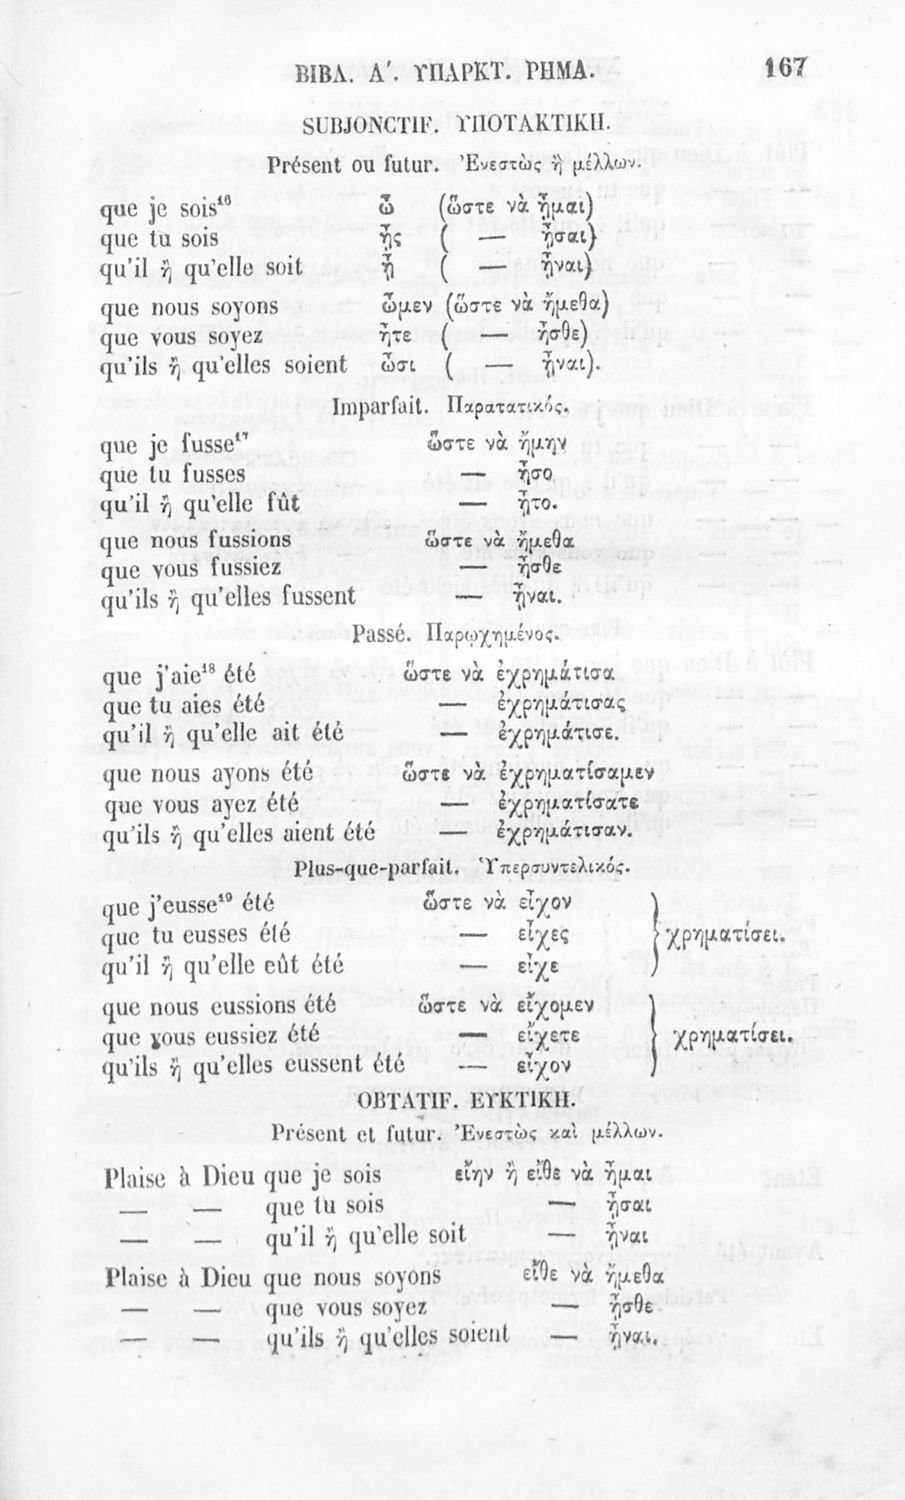 ΒΙΒΛ. Α΄. ΥΠΑΡΚΤ. ΡΗΜΑ. 167
SUBJONCTIF. ΥΠΟΤΑΚΤΙΚΗ.
Présent ou futur. Ἐνεστὼς ἢ μέλλων.
que je sois¹⁶ ὦ (ὥστε νὰ ἦμαι)
que tu sois ᾖς ( — ἦσαι)
qu'il ἢ qu'elle soit ᾖ ( — ἦναι)
que nous soyons ὦμεν (ὥστε νὰ ἤμεθα)
que vous soyez ἦτε ( — ἦσθε)
qu'ils ἢ qu'elles soient ὦσι ( — ἦναι).
Imparfait. Παρατατικός.
que je fusse¹⁷ ὥστε νὰ ἤμην
que tu fusses — ἦσο
qu'il ἢ qu'elle fût — ἦτο.
que nous fussions ὥστε νὰ ἤμεθα
que vous fussiez — ἦσθε
qu'ils ἢ qu'elles fussent — ἦναι.
Passé. Παρῳχημένος.
que j'aie¹⁸ été ὥστε νὰ ἐχρημάτισα
que tu aies été — ἐχρημάτισας
qu'il ἢ qu'elle ait été — ἐχρημάτισε.
que nous ayons été ὥστε νὰ ἐχρηματίσαμεν
que vous ayez été — ἐχρηματίσατε
qu'ils ἢ qu'elles aient été — ἐχρημάτισαν.
Plus-que-parfait. Ὑπερσυντελικός.
que j'eusse¹⁹ été ὥστε νὰ εἶχον
que tu eusses été — εἶχες } χρηματίσει.
qu'il ἢ qu'elle eût été — εἶχε
que nous eussions été ὥστε νὰ εἴχομεν
que vous eussiez été — εἴχετε } χρηματίσει.
qu'ils ἢ qu'elles eussent été — εἶχον
OBTATIF. ΕΥΚΤΙΚΗ.
Présent et futur. Ἐνεστὼς καὶ μέλλων.
Plaise à Dieu que je sois εἴην ἢ εἴθε νὰ ἦμαι
— — que tu sois — ἦσαι
— — qu'il ἢ qu'elle soit — ἦναι
Plaise à Dieu que nous soyons εἴθε νὰ ἤμεθα
— — que vous soyez — ἦσθε
— — qu'ils ἢ qu'elles soient — ἦναι.